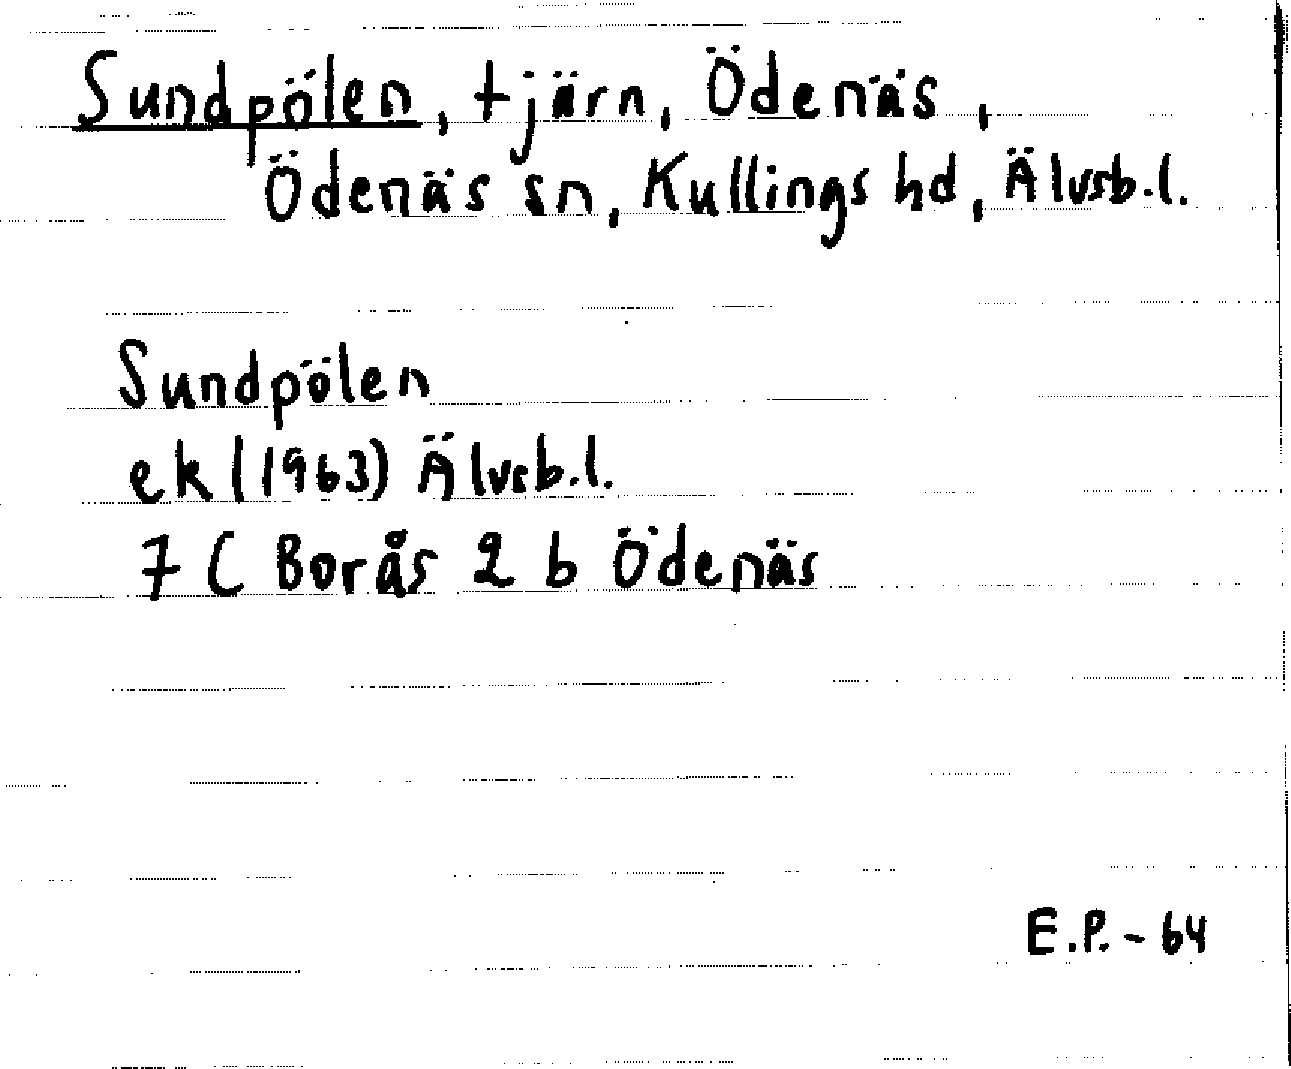 Sundpölen, tjärn, Ödenäs,
Ödenäs sn, Kullings hd, Älvsb.l.
Sundpölen
ek (1963) Älvsb.l.
7 C Borås 2 b Ödenäs
E.P. - 64